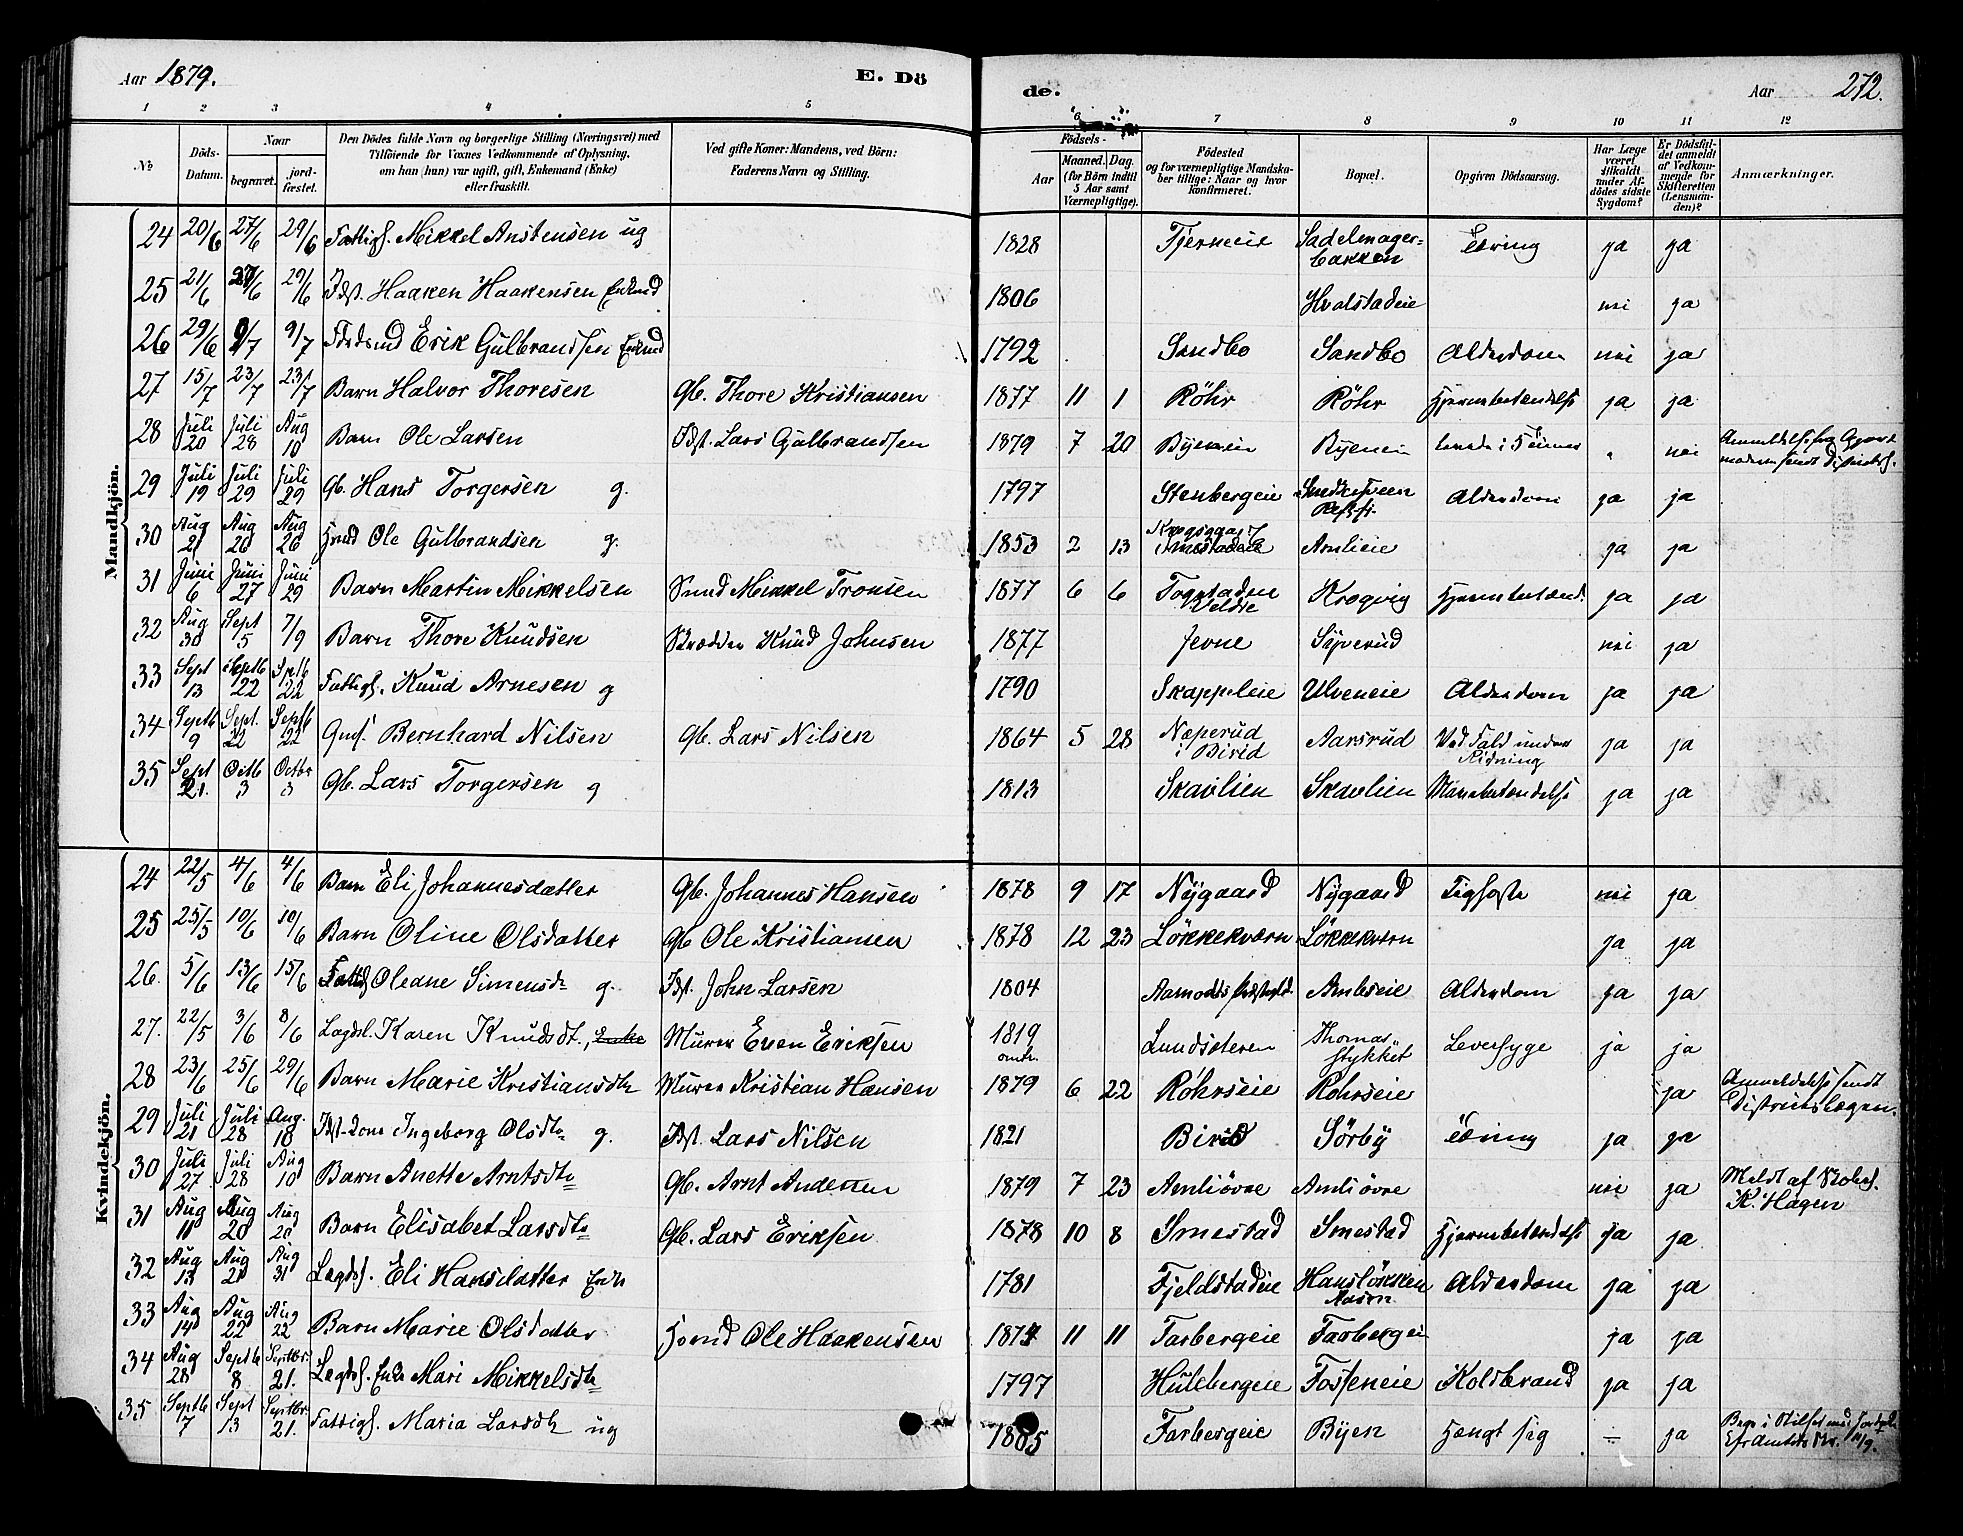 Aar 1879. E. Döde. Aar 272.
1 2 3 4 5 6 7 8 9 10 11 12
No
Döds-Datum.
Naar begravet. jordfæstet.
Den Dödes fulde Navn og borgerlige Stilling (Næringsvei) med Tilföiende for Voxnes Vedkommende af Oplysning, om han (hun) var ugift, gift, Enkemand (Enke) eller fraskilt.
Ved gifte Koner: Mandens, ved Börn: Faderens Navn og Stilling.
Födsels-
Aar
Maaned. Dag. (for Börn indtil 5 Aar samt Værnepligtige).
Födested og for værnepligtige Mandskaber tillige: Naar og hvor konfirmeret.
Bopæl.
Opgiven Dödsaarsag.
Har Læge været tilkaldt under Afdödes sidste Sygdom?
Er Dödsfaldet anmeldt af Vedkommende for Skifteretten (Lensmanden)?
Anmærkninger.
Mandkjön.
24 20/6 27/6 29/6 Fattigl. Mikkel Anstensen ug 1828 Tjerneie Sadelmagerbakken Tæring ja ja
25 21/6 27/6 29/6 Idst. Haaken Haakensen Enkmd 1806 Hvalstadeie nei ja
26 29/6 9/7 9/7 Erik Gulbrandsen Enkmd 1792 Sandbo Sandbo Alderdom nei ja
27 15/7 23/7 23/7 Barn Halvor Thoresen Gb. Thore Kristiansen 1877 11 1 Röhr Röhr Hjernebetændelse ja ja
28 Juli 20 Juli 28 Aug 10 Barn Ole Larsen Idst. Lars Gulbrandsen 1879 7 20 Byeneie Byeneie levede i 5 Timer " nei
29 Juli 19 Juli 29 Juli 29 Gb. Hans Torgersen g. 1797 Stenbergeie Alderdom ja ja
30 Aug 21 Aug 26 Aug 26 Hmd Ole Gulbrandsen g. 1853 2 13 Smestadeie Amlieie ja ja
31 Juni 6 Juni 27 Juni 29 Barn Martin Mikkelsen Smed Mikkel Tronsen 1877 6 6 Krogvig Hjernebetænd. ja ja
32 Aug 30 Sept 5 7/9 Barn Thore Knudsen Skrædder Knud Johnsen 1877 Jevne Syverud nei ja
33 Sept 13 Septb 22 Septb 22 Fattigl. Knud Arnesen g 1790 Skappeleie Ulveneie Alderdom ja ja
34 Septb 9 Sept. 22 Septb 22 Bernhard Nilsen Gb. Lars Nilsen 1864 5 28 Næperud i Birid Aarsrud Ved Fald under Ridning ja ja
35 Sept 21. Octb 3 Octbr 3 Gb. Lars Torgersen g 1813 Skavlien Skavlien Mavebetændelse ja ja
Kvindekjön.
24 22/5 4/6 4/6 Barn Eli Johannesdatter Gb. Johannes Hansen 1878 9 17 Nygaard Nygaard Kighoste nei ja
25 25/5 10/6 10/6 Barn Oline Olsdatter Gb Ole Kristiansen 1878 12 23 Lökkekværn Lökkekværn ja ja
26. 5/6 13/6 15/6 Oleane Simensdr g. Idst. John Larsen 1804 Amlieie Alderdom ja ja
27. 22/5 3/6 8/6 Lægdsl. Karen Knudsdt., Enke Murer Even Eriksen 1819 omtr. Lundseteren Thomasstykket Leversyge ja ja
28 23/6 25/6 29/6 Barn Marie Kristiansdtr Murer Kristian Hansen 1879 6 22 Röhrseie Röhrseie ja Anmeldelse sendt Districtslægen.
29 Juli 21 Juli 28 Aug. 10 Idst. Kone Ingeborg Olsdtr g. Idst. Lars Nilsen 1821 Birid Sörby Tæring ja ja
30 Juli 27 Juli 28 Aug 10 Barn Anette Arntsdtr Gb. Arnt Andersen 1879 7 23 Amliövre Amliövre nei ja Meldt af K. Hagen
31 Aug 11 Aug 20 Aug 20 Barn Elisabet Larsdtr Gb. Lars Eriksen 1878 10 8 Smestad Smestad Hjernebetændelse ja ja
32 Aug 13 Aug 21 Aug 31 Lægdsl. Eli Hansdatter Enke 1781 Fjeldstadeie Hanslökken Alderdom ja ja
33 Aug 14 Aug 22 Aug 22 Barn Marie Olsdatter Hmd Ole Haakensen 1874 11 11 Farbergeie Farbergeie ja ja
34 Aug 28 Septb 8 Septbr. 21. Lægdsl. Enke Mari Mikkelsdtr 1797 Hulebergeie Fosseneie Koldbrand ja ja
35 Septb 7 Sept 13 Septbr. 21. Fattigl. Maria Larsdtr ug 1805 Farbergeie Byen Hængt sig ÷ ja